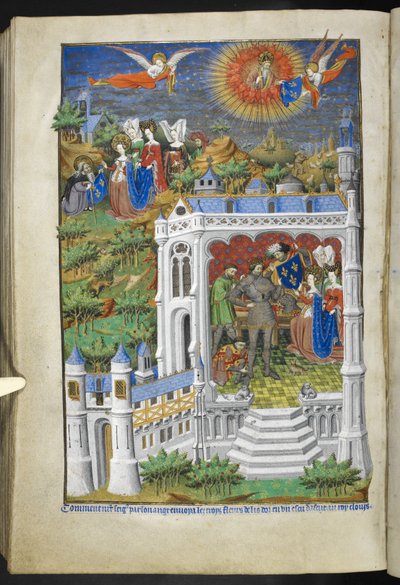 Comment nr̄e seigr̄ par son ange envoya les troys fleurs de lis dor en un escu dasur au roy clovis.